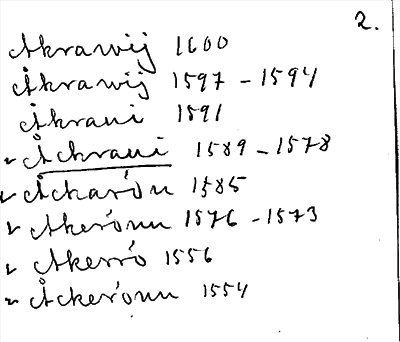 2.
Åkrawij 1600
Åkrawij 1597 - 1594
Åkraui 1591
v Åckraui 1589 - 1578
v Åckarőn 1585
v Akerőnn 1576 - 1573
v Akerrő 1556
v Åckerőnn 1554